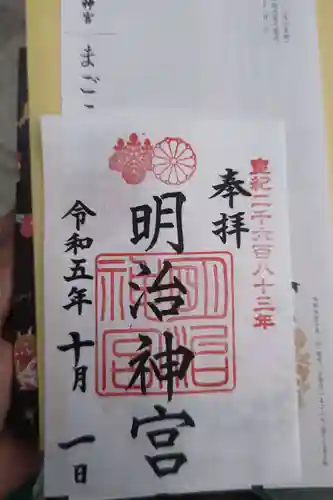 皇紀二千六百八十三年
奉拝
明治神宮
明治
神宮
令和五年 十月 一日
神宮
まごこ